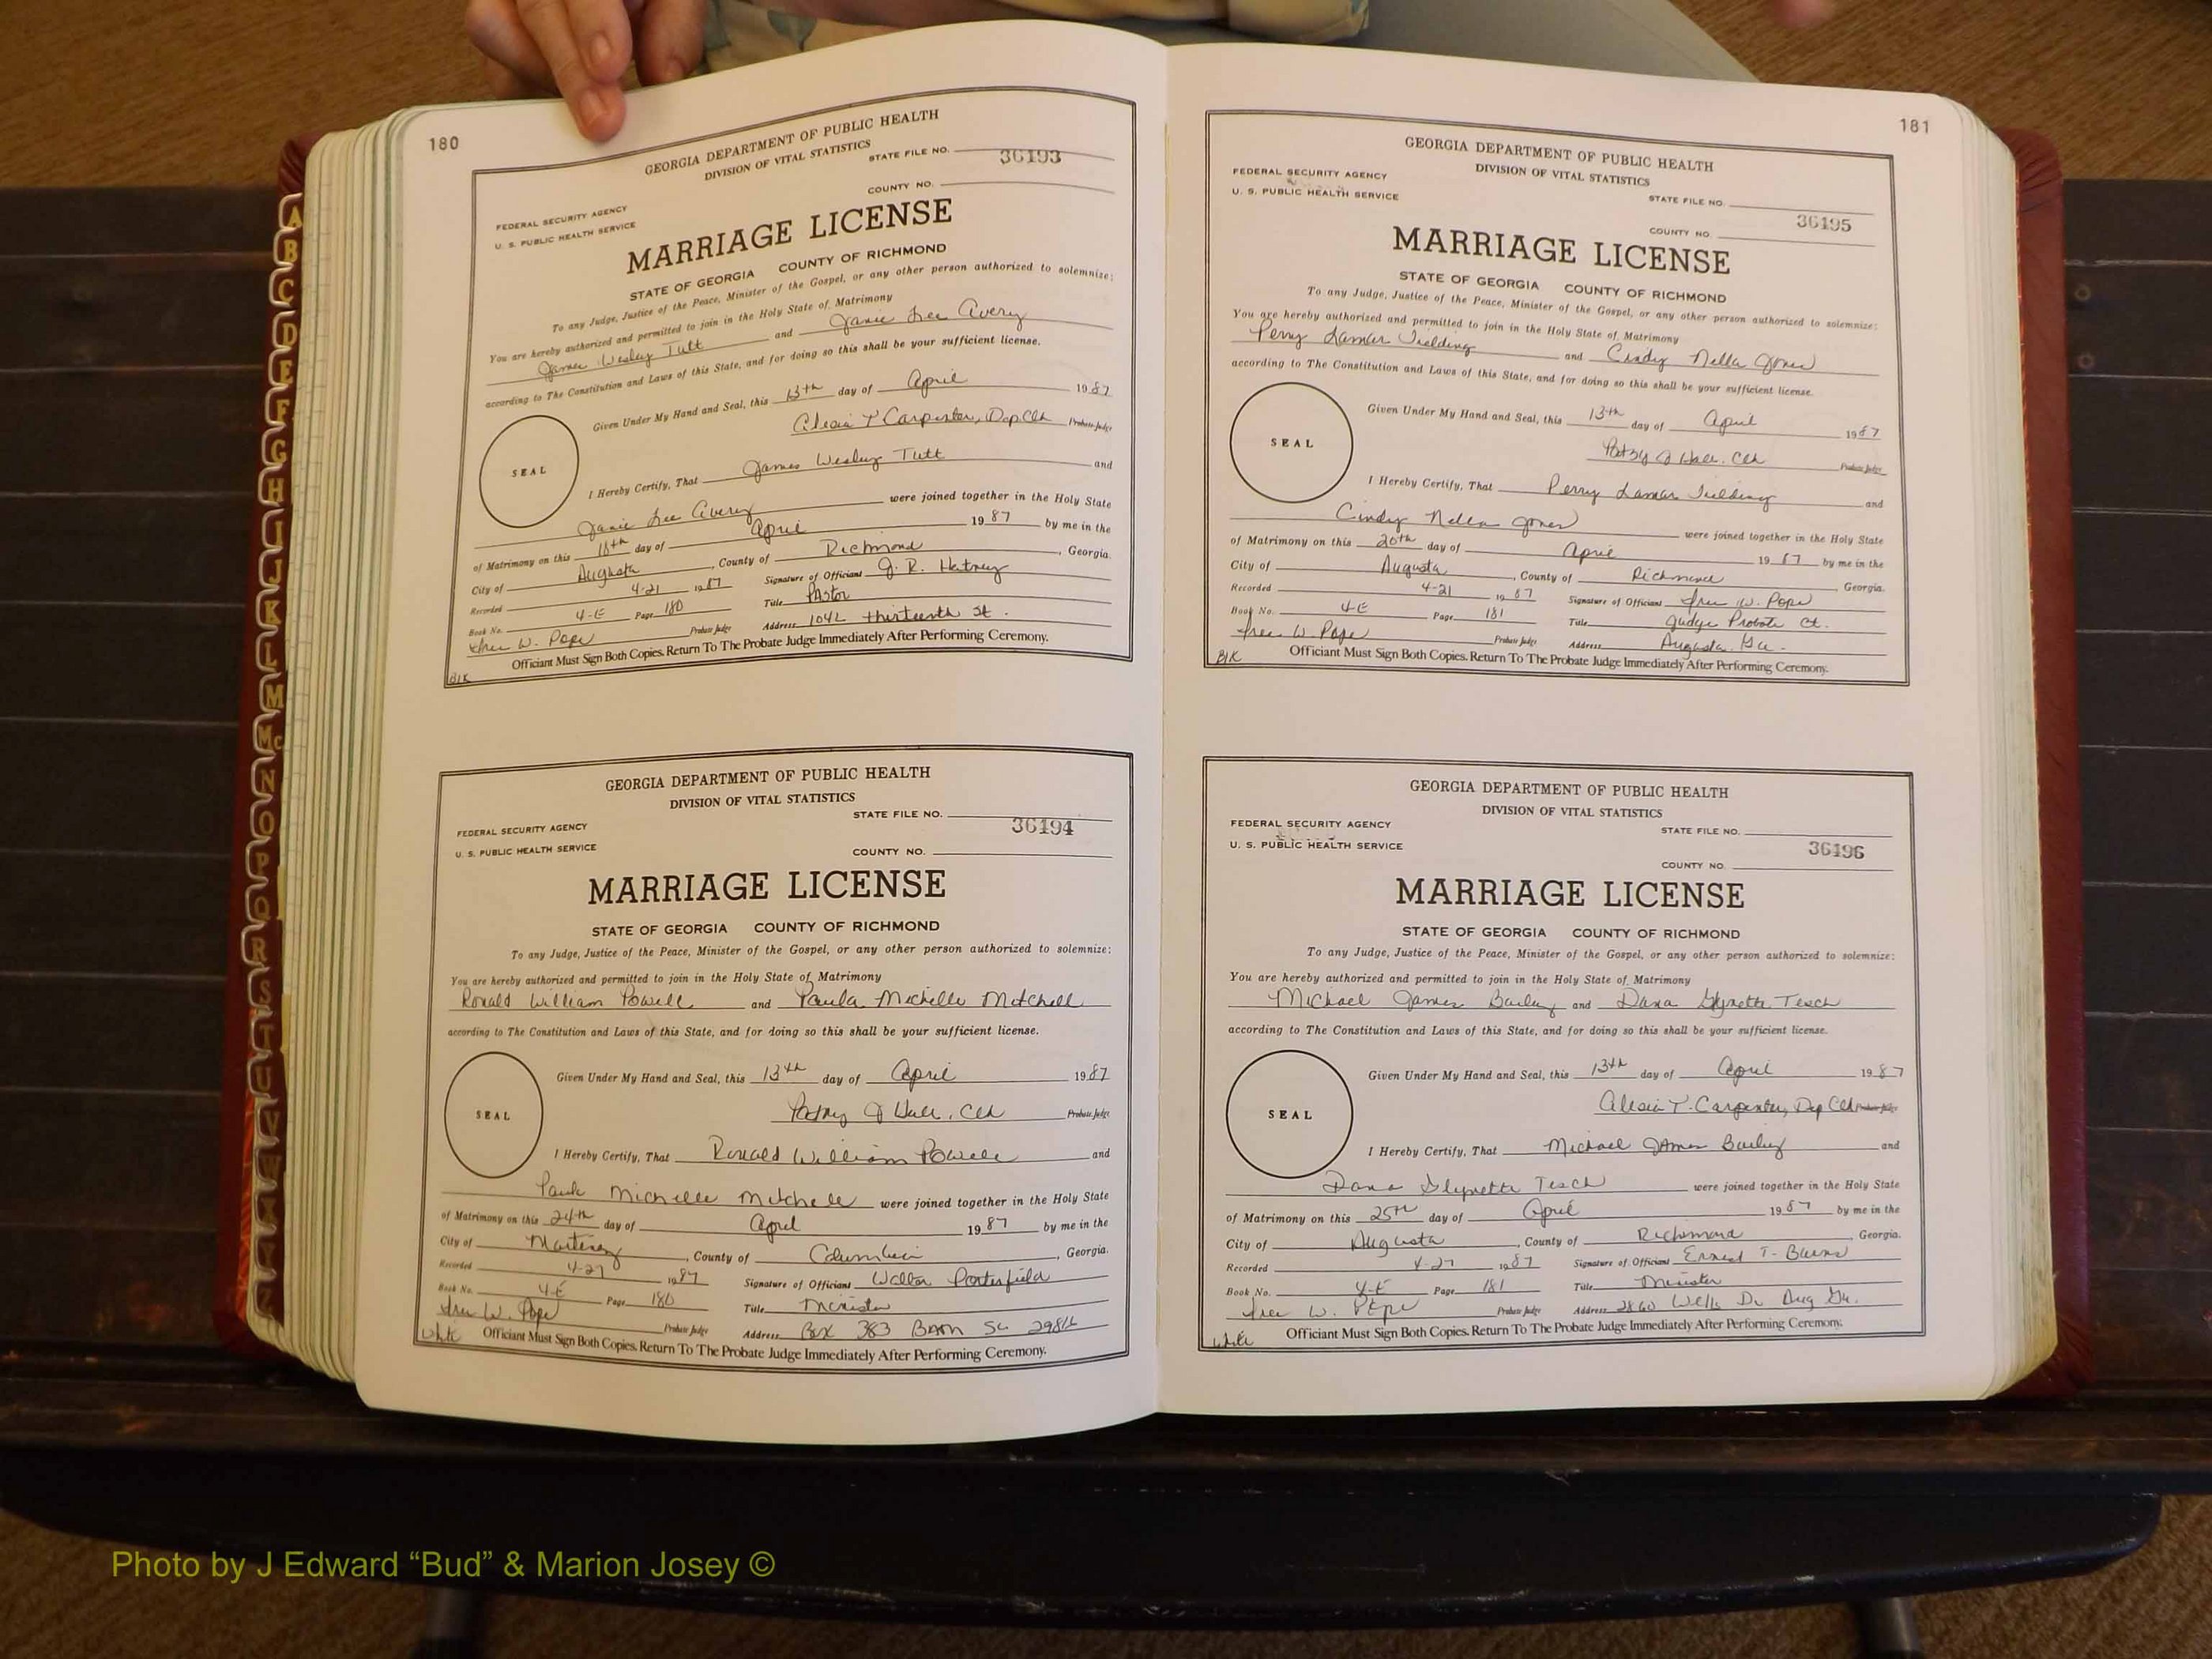 180
GEORGIA DEPARTMENT OF PUBLIC HEALTH
DIVISION OF VITAL STATISTICS
STATE FILE NO. 36193
COUNTY NO.
FEDERAL SECURITY AGENCY
U. S. PUBLIC HEALTH SERVICE
MARRIAGE LICENSE
STATE OF GEORGIA COUNTY OF RICHMOND
To any Judge, Justice of the Peace, Minister of the Gospel, or any other person authorized to solemnize:
You are hereby authorized and permitted to join in the Holy State of Matrimony
James Wesley Tutt and Janie Lee Avery
according to The Constitution and Laws of this State, and for doing so this shall be your sufficient license.
Given Under My Hand and Seal, this 13th day of April 1987
Alesia T Carpenter, Dep Clk Probate Judge
SEAL
I Hereby Certify, That James Wesley Tutt and
Janie Lee Avery were joined together in the Holy State
of Matrimony on this 18th day of April 1987 by me in the
City of Augusta, County of Richmond, Georgia.
Recorded 4-21 1987 Signature of Officiant J. R. Hatney
Book No. 4-E Page 180 Title Pastor
Lee W. Pope Probate Judge Address 1042 thirteenth St.
Officiant Must Sign Both Copies. Return To The Probate Judge Immediately After Performing Ceremony.
Blk
GEORGIA DEPARTMENT OF PUBLIC HEALTH
DIVISION OF VITAL STATISTICS
STATE FILE NO. 36194
FEDERAL SECURITY AGENCY
U. S. PUBLIC HEALTH SERVICE
COUNTY NO.
MARRIAGE LICENSE
STATE OF GEORGIA COUNTY OF RICHMOND
To any Judge, Justice of the Peace, Minister of the Gospel, or any other person authorized to solemnize:
You are hereby authorized and permitted to join in the Holy State of Matrimony
Ronald William Powell and Paula Michelle Mitchell
according to The Constitution and Laws of this State, and for doing so this shall be your sufficient license.
Given Under My Hand and Seal, this 13th day of April 1987
Patsy J Hall, Clk Probate Judge
SEAL
I Hereby Certify, That Ronald William Powell and
Paula Michelle Mitchell were joined together in the Holy State
of Matrimony on this 24th day of April 1987 by me in the
City of Martinez, County of Columbia, Georgia.
Recorded 4-27 1987 Signature of Officiant Walter Porterfield
Book No. 4-E Page 180 Title Minister
Lee W. Pope Probate Judge Address Box 383 Bath SC 29816
White Officiant Must Sign Both Copies. Return To The Probate Judge Immediately After Performing Ceremony.
181
GEORGIA DEPARTMENT OF PUBLIC HEALTH
DIVISION OF VITAL STATISTICS
FEDERAL SECURITY AGENCY
U. S. PUBLIC HEALTH SERVICE
STATE FILE NO.
36195
COUNTY NO.
MARRIAGE LICENSE
STATE OF GEORGIA COUNTY OF RICHMOND
To any Judge, Justice of the Peace, Minister of the Gospel, or any other person authorized to solemnize:
You are hereby authorized and permitted to join in the Holy State of Matrimony
Perry Lamar Fielding and Cindy Nella Jones
according to The Constitution and Laws of this State, and for doing so this shall be your sufficient license.
Given Under My Hand and Seal, this 13th day of April 1987
Patsy J Hall, Clk Probate Judge
SEAL
I Hereby Certify, That Perry Lamar Fielding and
Cindy Nella Jones were joined together in the Holy State
of Matrimony on this 20th day of April 1987 by me in the
City of Augusta, County of Richmond, Georgia.
Recorded 4-21 1987 Signature of Officiant Lee W. Pope
Book No. 4-E Page 181 Title Judge Probate Ct.
Lee W. Pope Probate Judge Address Augusta, Ga.
Blk Officiant Must Sign Both Copies. Return To The Probate Judge Immediately After Performing Ceremony.
GEORGIA DEPARTMENT OF PUBLIC HEALTH
DIVISION OF VITAL STATISTICS
FEDERAL SECURITY AGENCY
U. S. PUBLIC HEALTH SERVICE
STATE FILE NO.
36196
COUNTY NO.
MARRIAGE LICENSE
STATE OF GEORGIA COUNTY OF RICHMOND
To any Judge, Justice of the Peace, Minister of the Gospel, or any other person authorized to solemnize:
You are hereby authorized and permitted to join in the Holy State of Matrimony
Michael James Bailey and Dana Glynette Tesch
according to The Constitution and Laws of this State, and for doing so this shall be your sufficient license.
Given Under My Hand and Seal, this 13th day of April 1987
Alesia T. Carpenter, Dep Clk Probate Judge
SEAL
I Hereby Certify, That Michael James Bailey and
Dana Glynette Tesch were joined together in the Holy State
of Matrimony on this 25th day of April 1987 by me in the
City of Augusta, County of Richmond, Georgia.
Recorded 4-27 1987 Signature of Officiant Ernest T. Burns
Book No. 4-E Page 181 Title Minister
Lee W. Pope Probate Judge Address 2860 Wells Dr Aug Ga.
White Officiant Must Sign Both Copies. Return To The Probate Judge Immediately After Performing Ceremony.
A
B
C
D
E
F
G
H
I
J
K
L
M
Mc
N
O
P
Q
R
S
T
U
V
W
Photo by J Edward “Bud” & Marion Josey ©